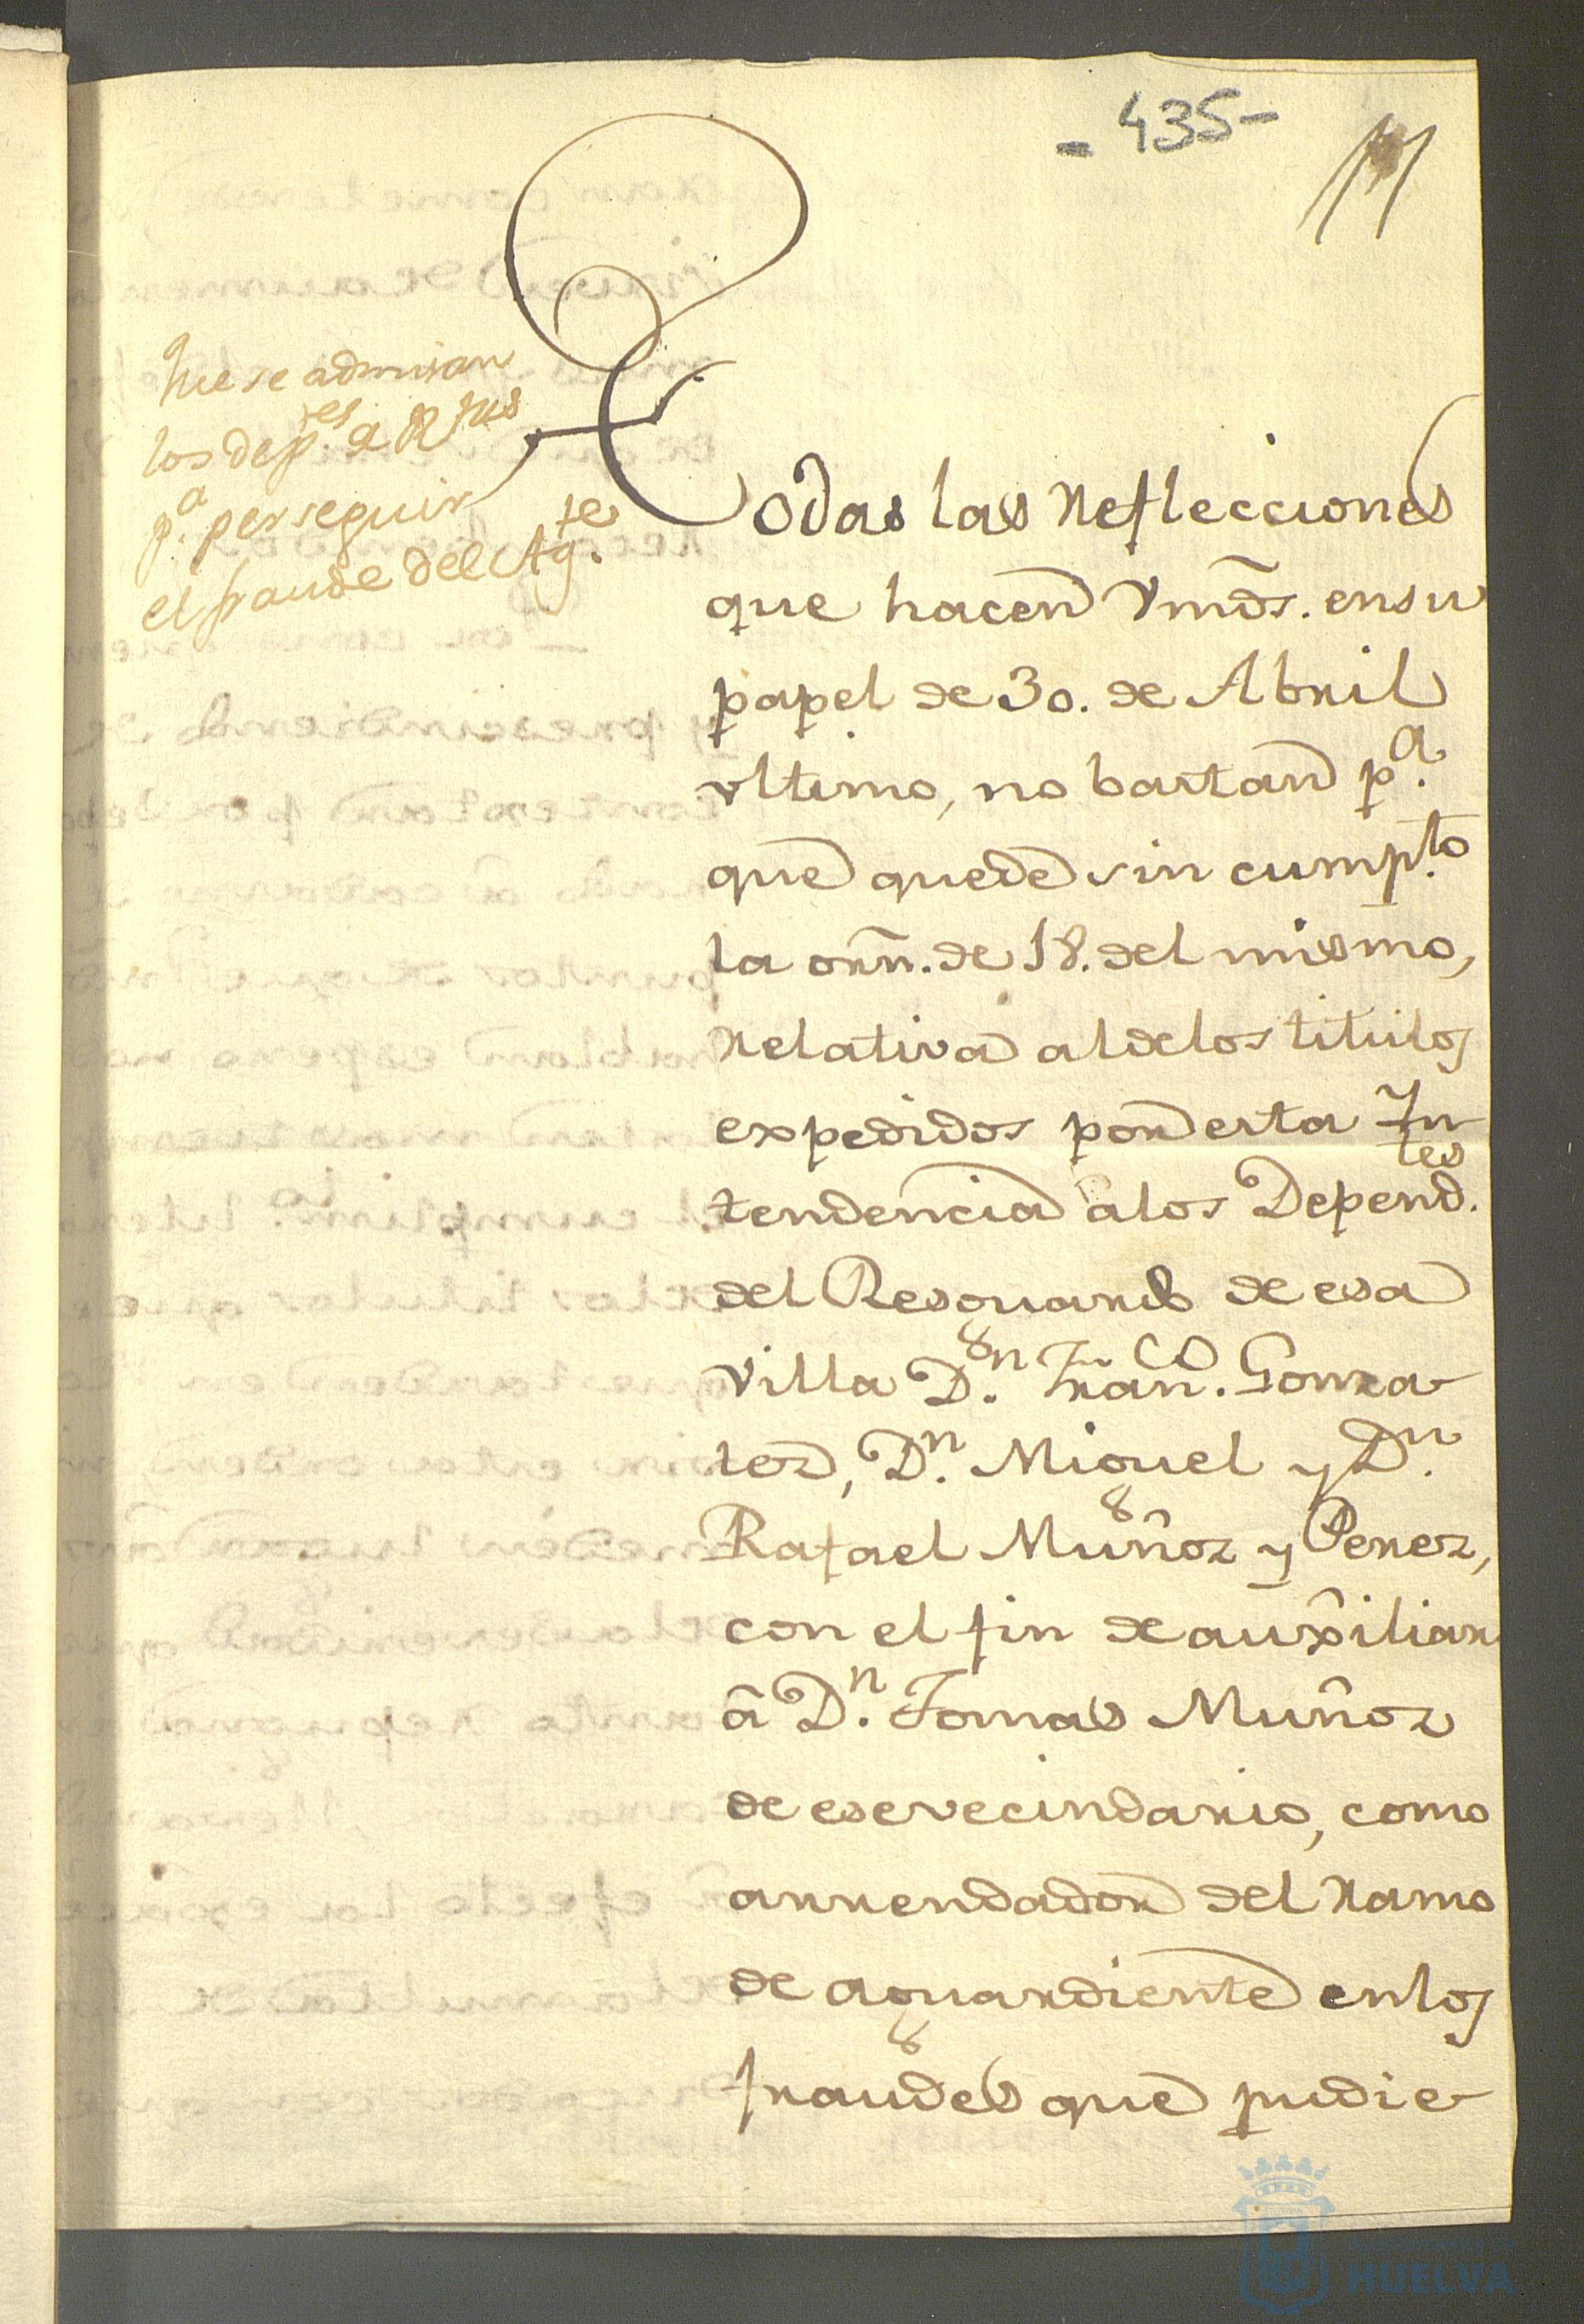 - 435 -
Que se admitan
los dep.res de R.tas
p.a perseguir
el fraude del Ag.te
Todas las reflecciones
que hacen Vmds. en su
papel de 30. de Abril
ultimo, no bastan p.a
que quede sin cumpto
la orn. de 18. del mismo,
relativa al de los titulos
expedidos por esta In
tendencia a los Depend.tes
del Resguardo de esa
Villa D.n Fran.co Gonza
lez, D.n Miguel y D.n
Rafael Muñoz y Perez,
con el fin de auxîliar
â D.n Tomas Muñoz
de ese vecindario, como
arrendador del ramo
de aguardiente en los
fraudes que pudie
HUELVA